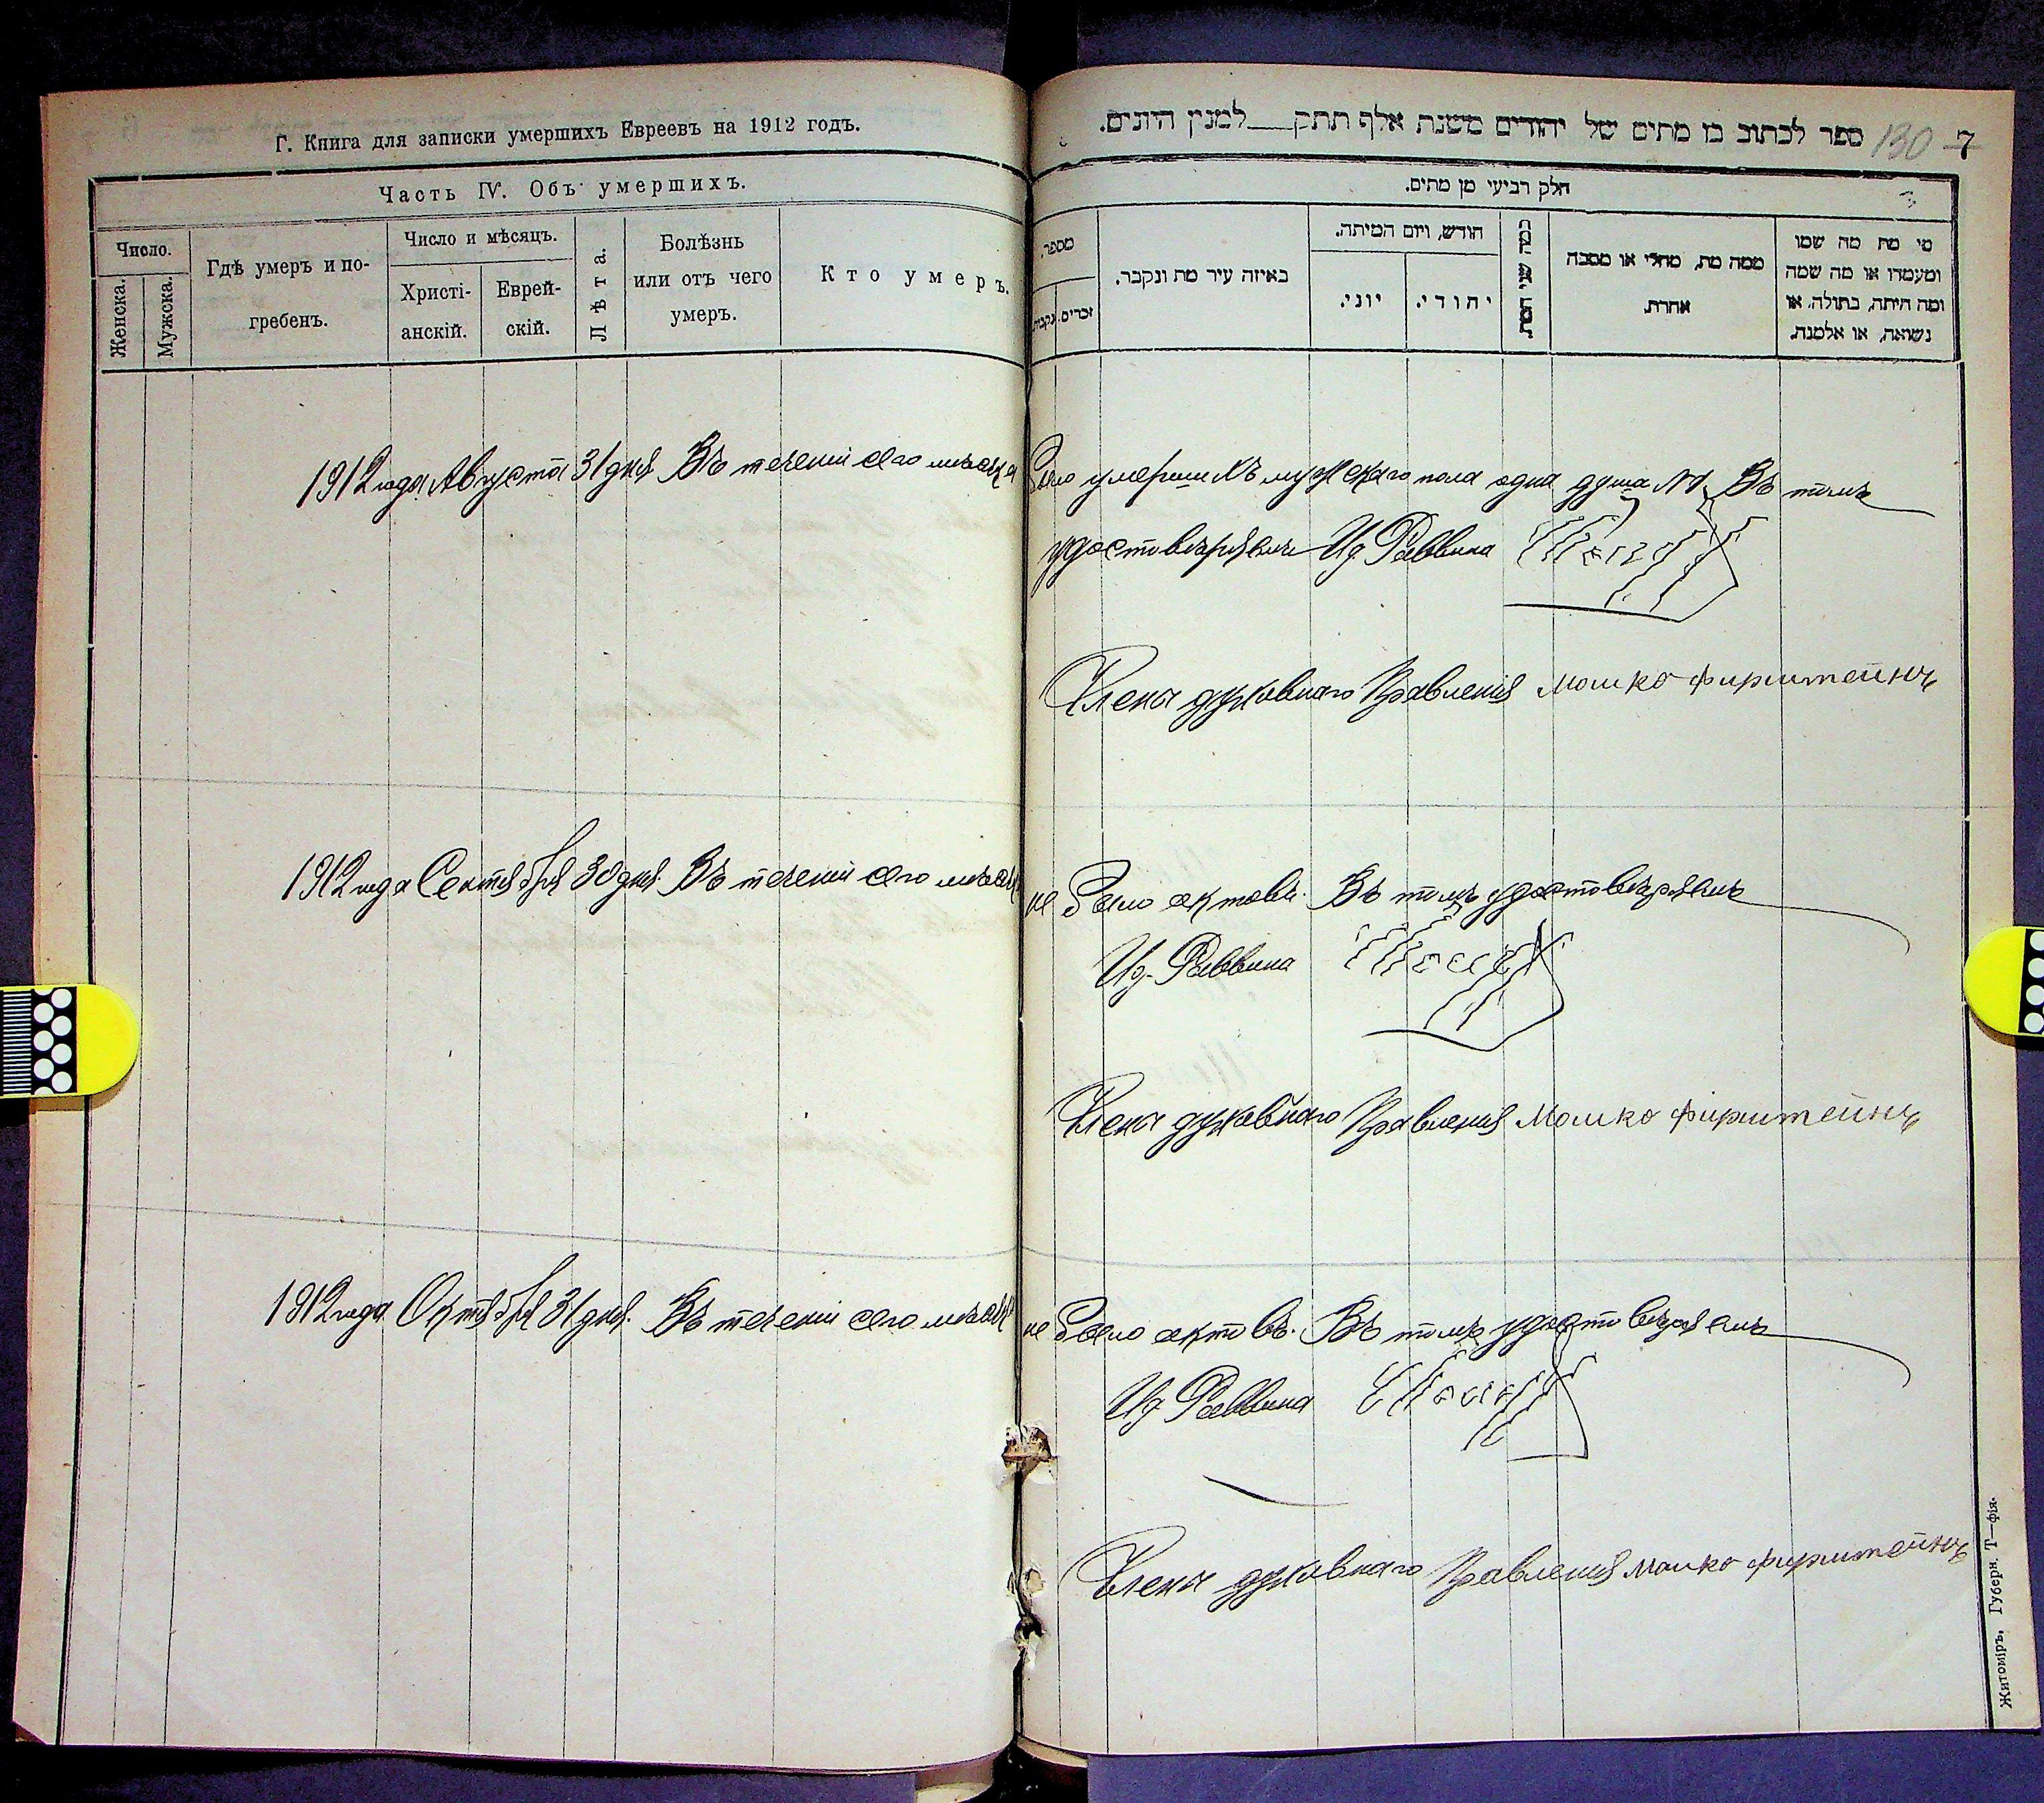 Г. Книга для записки умершихъ Евреевъ на 1912 годъ.
Часть IV. Объ умершихъ.
Число.
Женска.
Мужска.
Гдѣ умеръ и по-
гребенъ.
Число и мѣсяцъ.
Христі-
анскій.
Еврей-
скій.
Лѣта.
Болѣзнь
или отъ чего
умеръ.
Кто умеръ.
130 ד
ספר לכתוב בו מתים של יהודים משנת אלף תתק___למנין היונים.
חלק רביעי מן מתים.
מספר.
זכרים.
נקבות.
באיזה עיר מת ונקבר.
חודש, ויום המיתה.
יוני.
יהודי.
כמה שני המת.
ממה מת, מחלי או מסבה
אחרת.
מי מת מה שמו
ומעמדו או מה שמה
ומה היתה, בתולה, או
נשואה, או אלמנה.
1912 года Августа 31 дня Въ теченіи сего мѣсяца было умершихъ мужскаго пола одна душа №1. Въ томъ
удостовѣряемъ И д. Раввина
Члены духовнаго Правленія Мошко Фирштейнъ
1912 года Сентября 30 дня. Въ теченіи сего мѣсяца не было актовъ. Въ томъ удостовѣряемъ
И д. Раввина
Члены духовнаго Правленія Мошко Фирштейнъ
1912 года Октября 31 дня. Въ теченіи сего мѣсяца не было актовъ. Въ томъ удостовѣряемъ
И д. Раввина
Члены духовнаго Правленія Мошко Фирштейнъ
Житоміръ, Губерн. Т—фія.